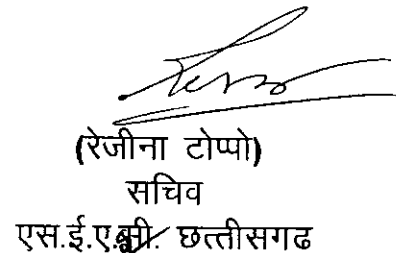 (रेजीना टोप्पो)
सचिव
एस.ई.ए.सी. छत्तीसगढ